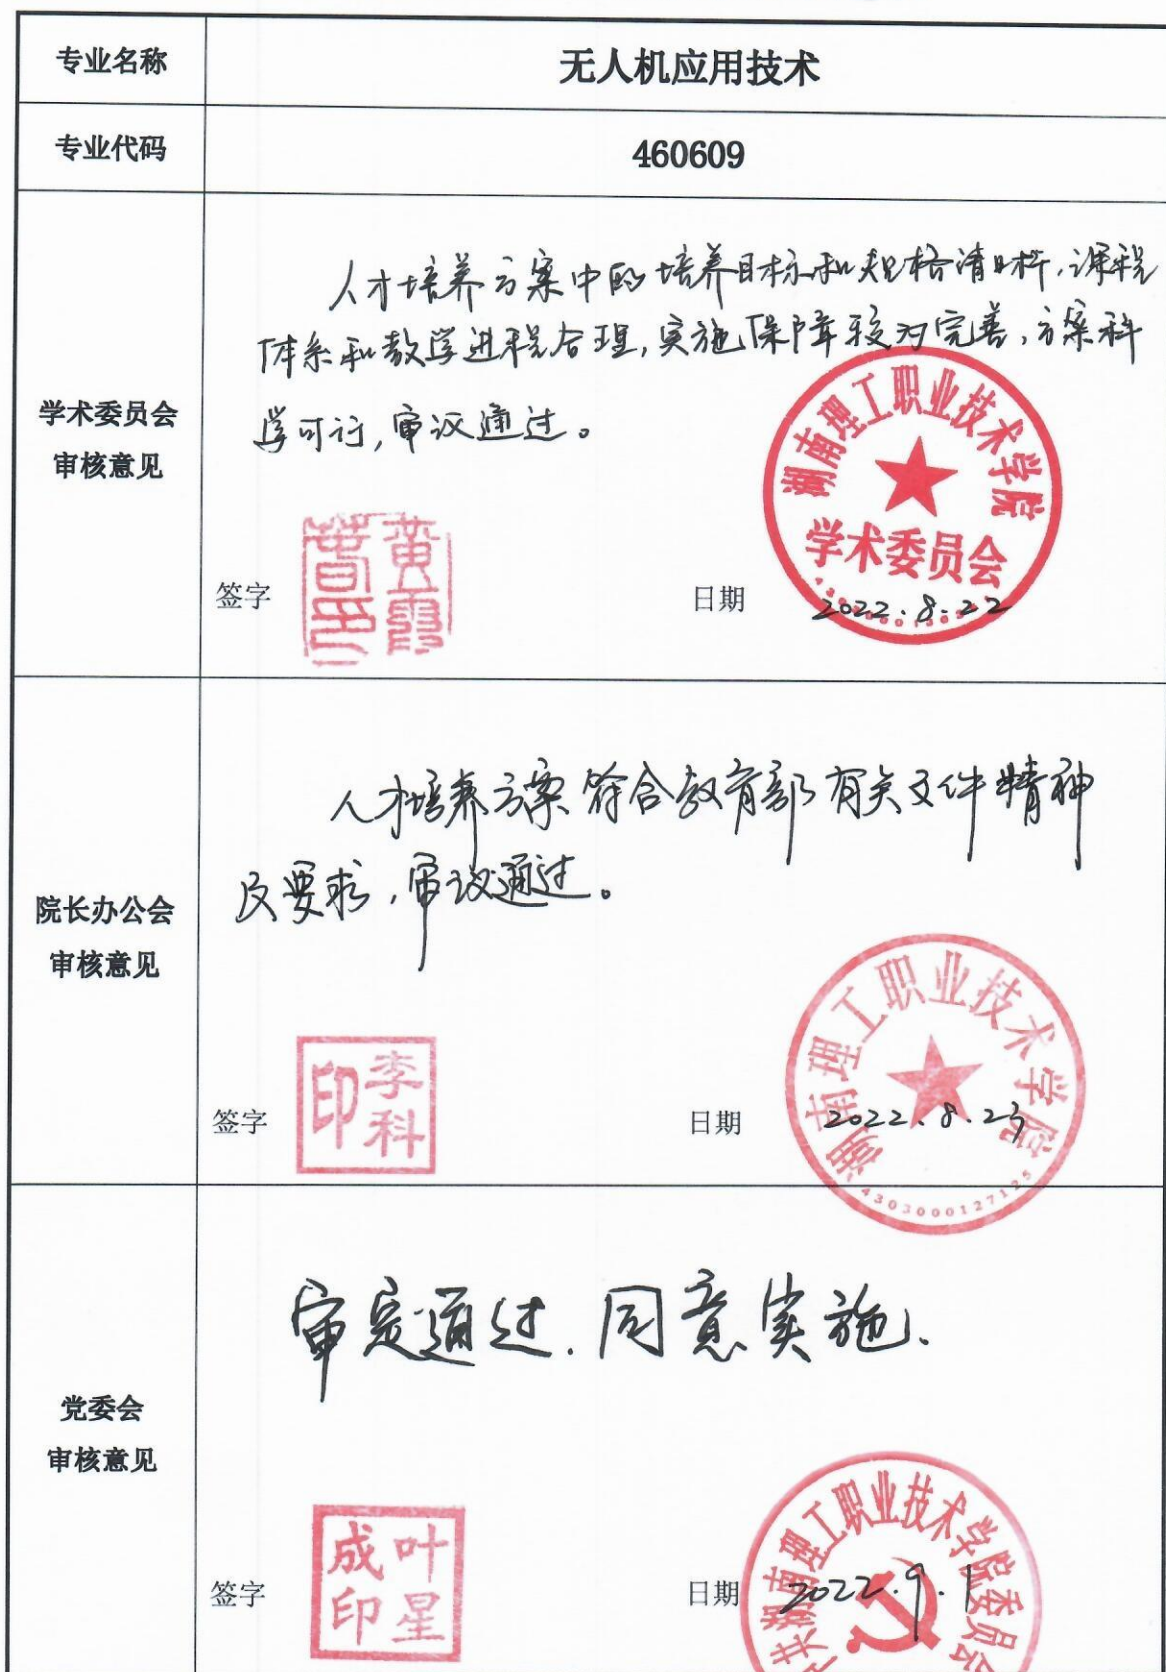 专业名称
无人机应用技术
专业代码
460609
学术委员会
审核意见
人才培养方案中的培养目标和规格清晰,课程
体系和教学进程合理,实施保障较为完善,方案科
学可行,审议通过。
湖南理工职业技术学院
学术委员会
签字
黄霞
春印
日期
2022.8.22
院长办公会
审核意见
人才培养方案符合教育部有关文件精神
及要求,审议通过。
签字
李科
印
日期
2022.8.23
湖南理工职业技术学院
4303000127125
党委会
审核意见
审定通过.同意实施.
签字
叶星
成印
日期
2022.9.1
共湖南理工职业技术学院委员会